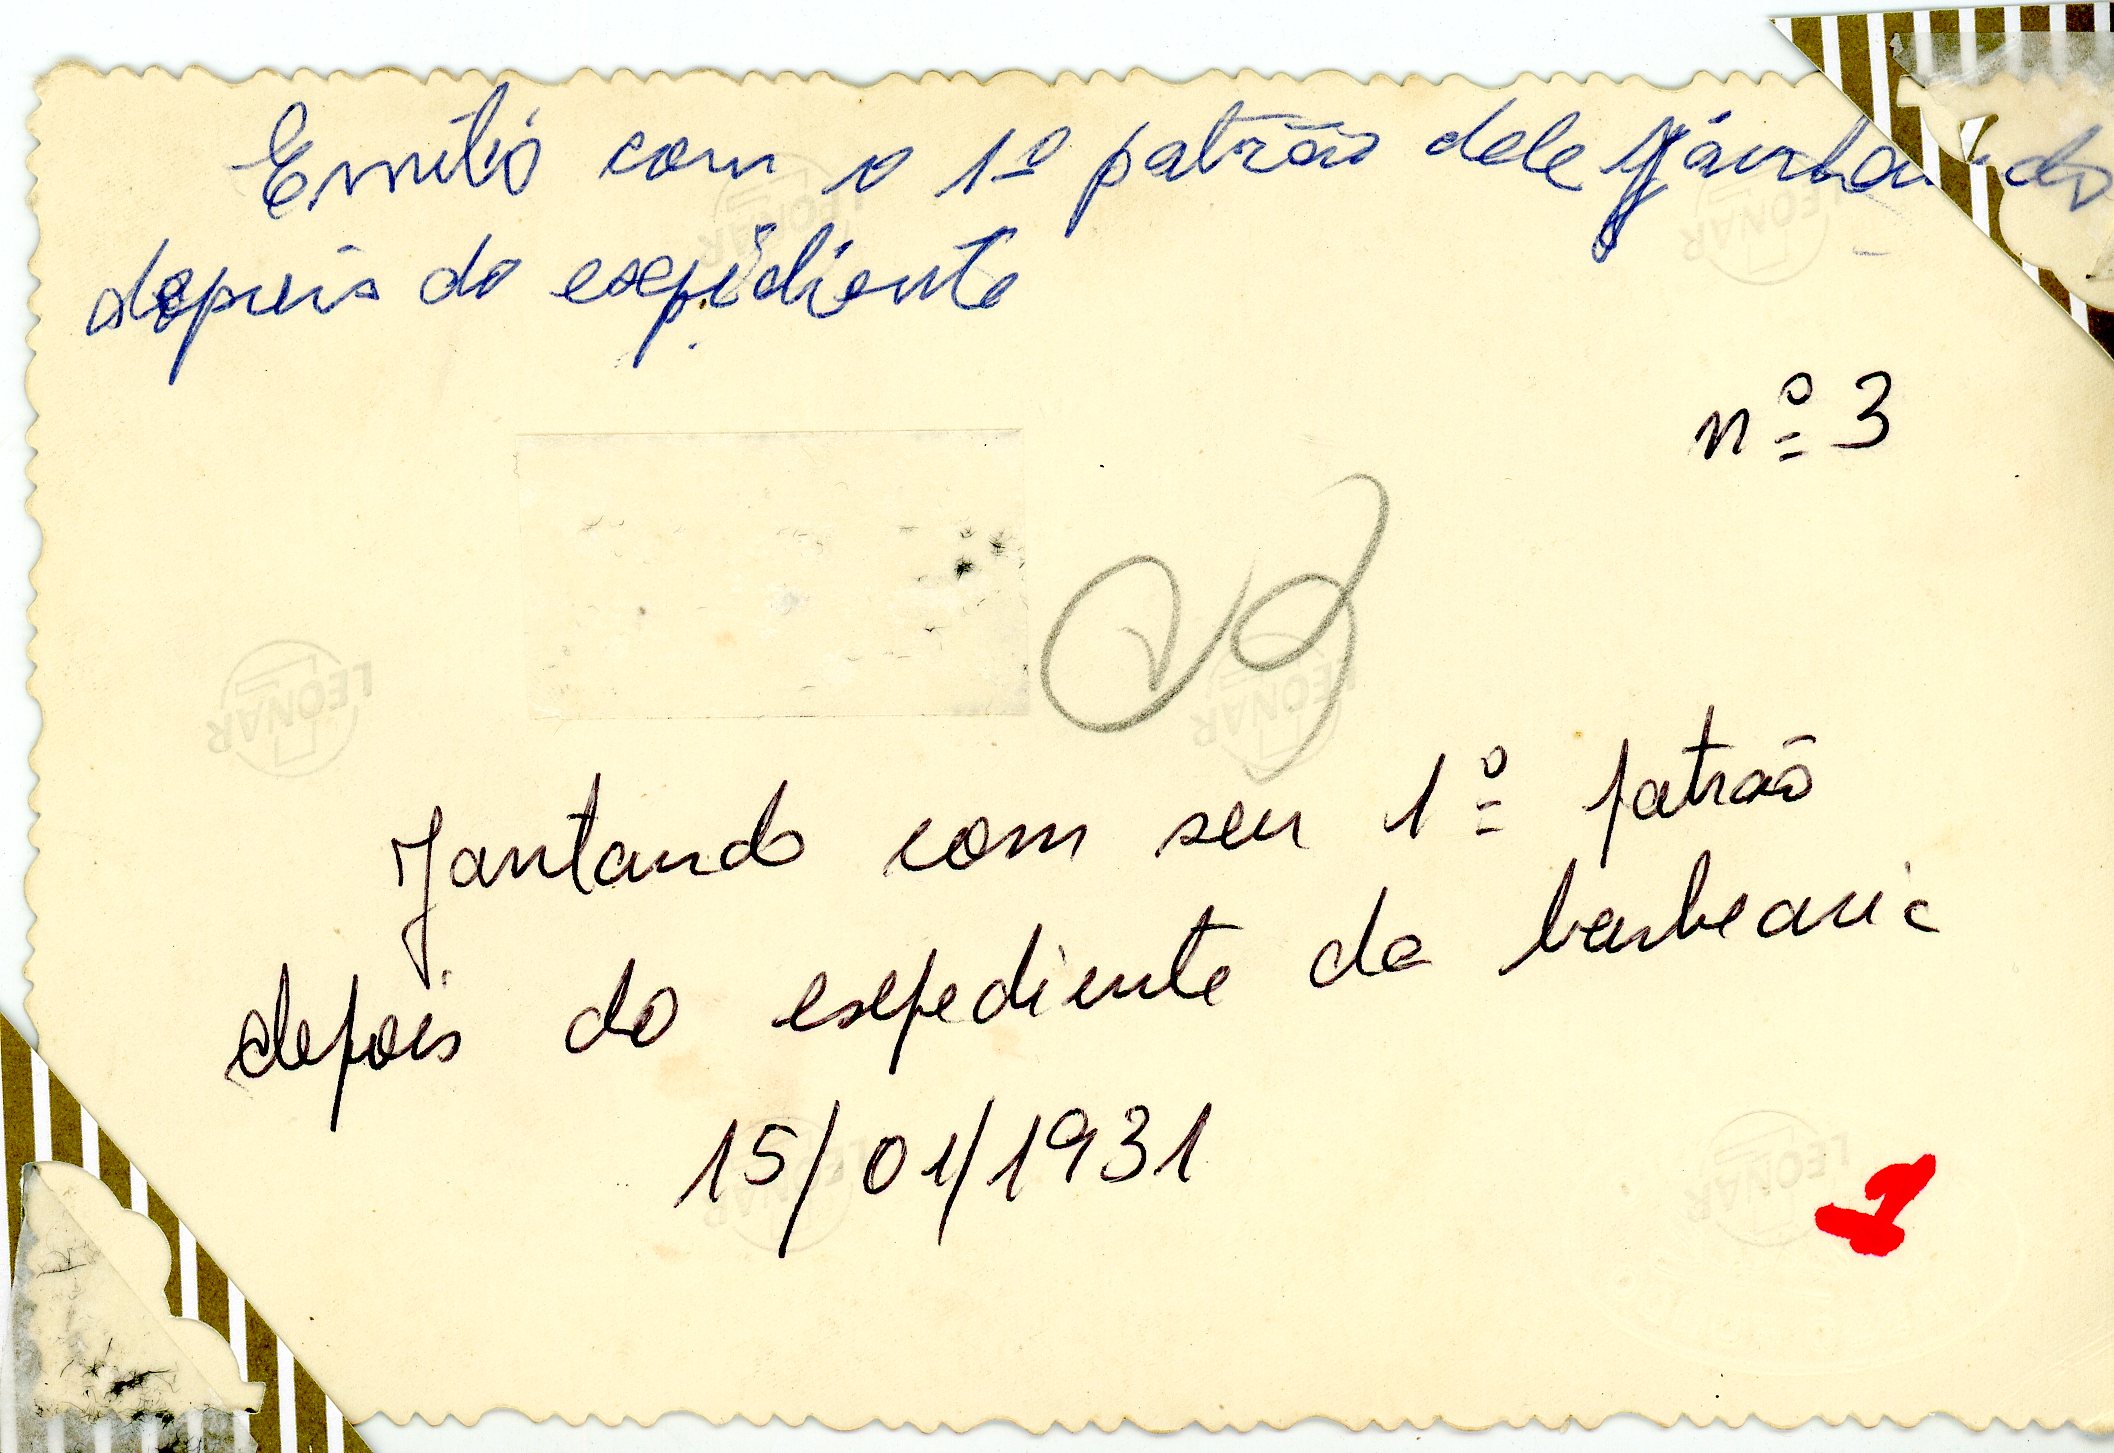 Emílio com o 1º patrão dele jantando
depois do expediente
nº 3
Jantando com seu 1º patrão
depois do expediente da barbearia
15/01/1931
1
LEONAR
LEONAR
LEONAR
LEONAR
LEONAR
LEONAR